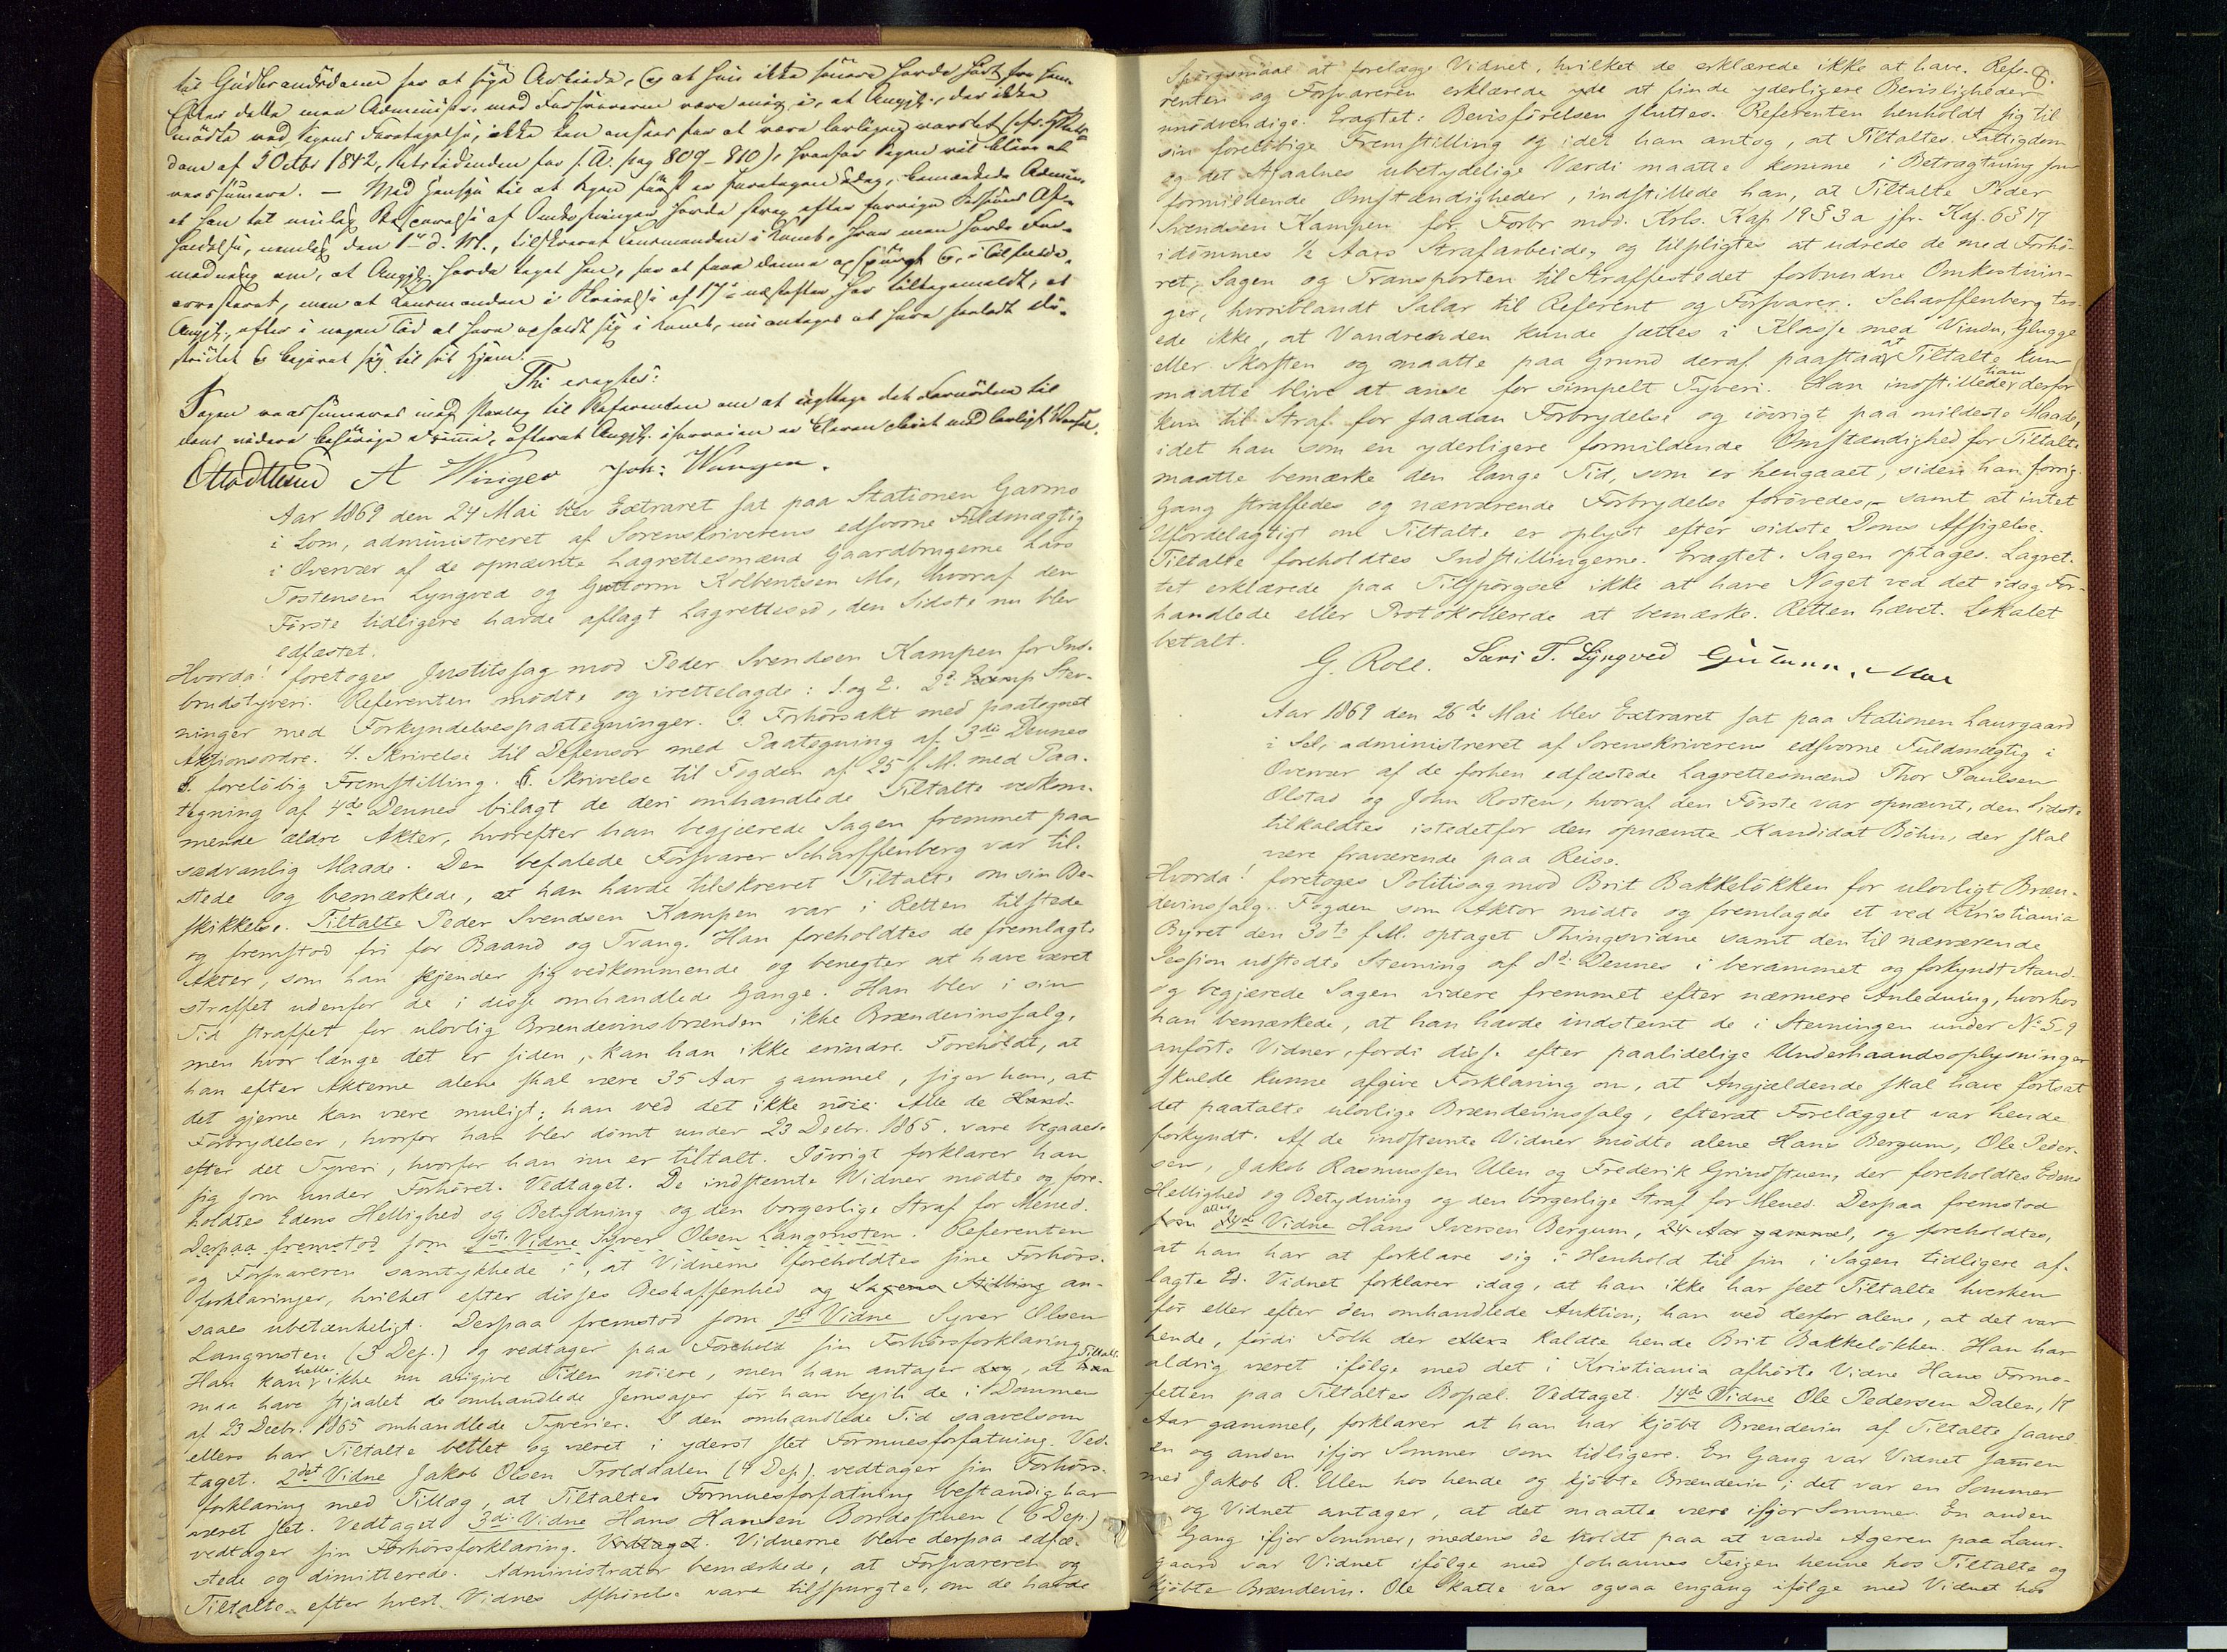 til Gudbrandsdalen for at søge Arbeide, og at hun ikke senere havde hørt fra ham.
Efter dette man Administr. med Forsvareren være enig i, at Angjh., der ikke
mødte ved Sagens Foretagelse, ikke kan ansees for at være lovligen varslet (cfr. H. R.
dom af 5 Octbr 1842, Retstidenden for s. A. pag 809–810), hvorfor Sagen vil blive at
udsættes. — Med Hensyn til at Sagen først er foretagen idag, bemærkede Admin.
at han
holdelse, nemlig den 1ste d. M., tilskrevet Lensmanden i
arresteret, men at Lensmanden i Skrivelse af 17de næstefter har tilbagemeldt, at
Angjh., efter i nogen Tid at have opholdt sig i nu antages at have forladt Di-
striktet og begivet sig til sit Hjem.
Thi eragtes:
Sagen udsættes med Paalæg til Referenten om at iagttage det Fornødne til
dens videre
A Winger Joh: Wangen.
Aar 1869 den 24 Mai blev Extraret sat paa Stationen Garmo
i Lom, administreret af Sorenskriverens edsvorne Fuldmægtig
i Overvær af de opnævnte Lagrettesmænd Gaardbrugerne Lars
Tostensen Lyngved og Guttorm Kolbentsen Mo, hvoraf den
Første tidligere havde aflagt Lagrettesed, den Sidste nu blev
edfæstet.
Hvorda! foretoges Justitssag mod Peder Svendsen Kampen for Ind-
brudstyveri. Referenten mødte og irettelagde: 1. og 2. 2de Stev-
ninger med Forkyndelsespaategninger. 3 Forhørsakt med paategnet
Aktionsordre. 4. Skrivelse til Defensor med Paategning af 3die Dennes
5. foreløbig Fremstilling. 6. Skrivelse til Fogden af 25 f. M. med Paa-
tegning af 4de Dennes bilagt de deri omhandlede Tiltalte vedkom-
mende ældre Akter, hvorefter han begjærede Sagen fremmet paa
sædvanlig Maade. Den befalede Forsvarer Scharffenberg var til-
stede og bemærkede, at han havde tilskrevet Tiltalte om sin Be-
skikkelse. Tiltalte Peder Svendsen Kampen var i Retten tilstede
og fremstod fri for Baand og Tvang. Han foreholdtes de fremlagte
Akter, som han kjender sig vedkommende og benegter at have været
straffet udenfor de i disse omhandlede Gange. Han blev i sin
Tid straffet for ulovlig Brændevinsbrænden ikke Brændevinssalg,
men hvor længe det er siden, kan han ikke erindre. Foreholdt, at
han efter Akterne alene skal være 35 Aar gammel, siger han, at
det gjerne kan være muligt; han ved det ikke nøie. Alle de
Forbrydelser, hvorfor han blev dømt under 23 Decbr. 1865. vare begaaede
efter det Tyveri, hvorfor han nu er tiltalt. Iøvrigt forklarer han
sig som under Forhøret. Vedtaget. De indstevnte Vidner mødte og fore-
holdtes Edens Hellighed og Betydning og den borgerlige Straf for Mened.
Derpaa fremstod som 1ste Vidne Syver Olsen Langmsten. Referenten
og Forsvareren samtykkede i, at Vidnerne foreholdtes sine Forhørs-
forklaringer, hvilket efter disses Beskaffenhed og Sagens Stilling an-
saaes ubetænkeligt. Derpaa fremstod som 1ste Vidne Syver Olsen
Langmsten (3 Dep.) og vedtager paa Forehold sin Forhørsforklaring
Han kan heller ikke nu angive Tiden nøiere, men han antager at Tiltalt.
maa have stjaalet de omhandlede Jernsager før han begik de i Dommen
af 23 Decbr. 1865 omhandlede Tyverier. I den omhandlede Tid saavelsom
ellers har Tiltalte bettlet og været i yderst slet Formuesforfatning. Ved-
taget. 2det Vidne Jakob Olsen Trolddalen (4 Dep). vedtager sin Forhørs-
forklaring med Tillæg, at Tiltaltes Formuesforfatning bestandig har
været slet. Vedtaget 3die Vidne Hans Hansen Bordestuen (6 Dep.)
vedtager sin Forhørsforklaring. Vedtaget. Vidnerne bleve derpaa edfæ-
stede og dimitterede. Administrator bemærkede, at Forsvareren og
Tiltalte efter hvert Vidnes Afhørelse vare tilspurgte, om de havde
8.
Spørgsmaal at forelægge Vidnet, hvilket de erklærede ikke at have. Refe-
renten og Forsvareren erklærede yde at finde yderligere Bevisligheder
unødvendige. Eragtet: Bevisførelsen sluttes. Referenten henholdt sig til
sin foreløbige Fremstilling og idet han antog, at Tiltaltes Fattigdom
og det Stjaalnes ubetydelige Værdi maatte komme i Betragtning som
formildende Omstændigheder, indstillede han, at Tiltalte Peder
Svendsen Kampen for Forbr mod. Krls. Kap. 19 § 3 a jfr. Kap. 6 § 17
idømmes ½ Aars Strafarbeide, og tilpligtes at udrede de med Forhø-
ret, Sagen og Transporten til Straffestedet forbundne Omkostnin-
ger, hvoriblandt Salær til Referent og Forsvarer. Scharffenberg tro-
ede ikke, at Vandrenden kunde sættes i Klasse med Vindu, Glugge
eller Skorsten og maatte paa Grund deraf paastaa, at Tiltalte kun
maatte blive at anse for simpelt Tyveri. Han indstillede han derfor
kun til Straf for saadan Forbrydelse og iøvrigt paa mildeste Maade,
idet han som en yderligere formildende Omstændighed for Tiltalte
maatte bemærke den lange Tid, som er hengaaet, siden han forrige
Gang straffedes og nærværende Forbrydelse forøvedes,– samt at intet
Ufordelagtigt om Tiltalte er oplyst efter sidste Doms Afsigelse.
Tiltalte foreholdtes Indstillingerne. Eragtet. Sagen optages. Lagret-
tet erklærede paa Tilspørgsel ikke at have Noget ved det idag For-
handlede eller Protokollerede at bemærke. Retten hævet. Lokalet
betalt.
G. Roll. Lars T. Lyngved Gutorm. Moe
Aar 1869 den 26de Mai blev Extraret sat paa Stationen Laurgaard
i Sel, administreret af Sorenskriverens edsvorne Fuldmægtig i
Overvær af de forhen edfæstede Lagrettesmænd Thor Paulsen
Olstad og John Rosten, hvoraf den Første var opnævnt, den Sidste
tilkaldtes istedetfor den opnævnte Kandidat Bøhn, der skal
være fraværende paa Reise.
Hvorda! foretoges Politisag mod Brit Bakkeløkken for ulovligt Bræn-
devinssalg. Fogden som Aktor mødte og fremlagde et ved Kristiania
Byret den 30te f. M. optaget Thingsvidne samt den til nærværende
Session udstedte Stevning af 8de Dennes i berammet og forkyndt Stand
og begjærede Sagen videre fremmet efter nærmere Anledning, hvorhos
han bemærkede, at han havde indstevnt de i Stevningen under No 5–9
anførte Vidner, fordi disse efter paalidelige Underhaandsoplysninger
skulde kunne afgive Forklaring om, at Angjældende skal have fortsat
det paatalte ulovlige Brændevinssalg, efterat Forelægget var hende
forkyndt. Af de indstevnte Vidner mødte alene Hans Bergum, Ole Peder-
sen, Jakob Rasmussen Ulen og Frederik Grindstuen, der foreholdtes Edens
Hellighed og Betydning og den borgerlige Straf for Mened. Derpaa fremstod
Vidne Hans Iversen Bergum, 24 Aar gammel, og foreholdtes,
at han har at forklare sig i Henhold til sin i Sagen tidligere af-
lagte Ed. Vidnet forklarer idag, at han ikke har seet Tiltalte hverken
før eller efter den omhandlede Auktion; han ved derfor alene, at det var
hende, fordi Folk der ellers kaldte hende Brit Bakkeløkken. Han har
aldrig været ifølge med det i Kristiania afhørte Vidne Hans Formo-
setten paa Tiltaltes Bopæl. Vedtaget. 14de Vidne Ole Pedersen Dalen, 17
Aar gammel, forklarer at han har kjøbt Brændevin af Tiltalte saavel
en og anden ifjor Sommer som tidligere. En Gang var Vidnet sammen
med Jakob R. Ulen hos hende og kjøbte Brændevin; det var en Sommer
og Vidnet antager, at det maatte være ifjor Sommer. En anden
Gang ifjor Sommer, medens de holdt paa at vande Ageren paa Laur-
gaard var Vidnet ifølge med Johannes Teigen henne hos Tiltalte og
kjøbte Brændevin. Ole Skatte var ogsaa engang ifølge med Vidnet hos